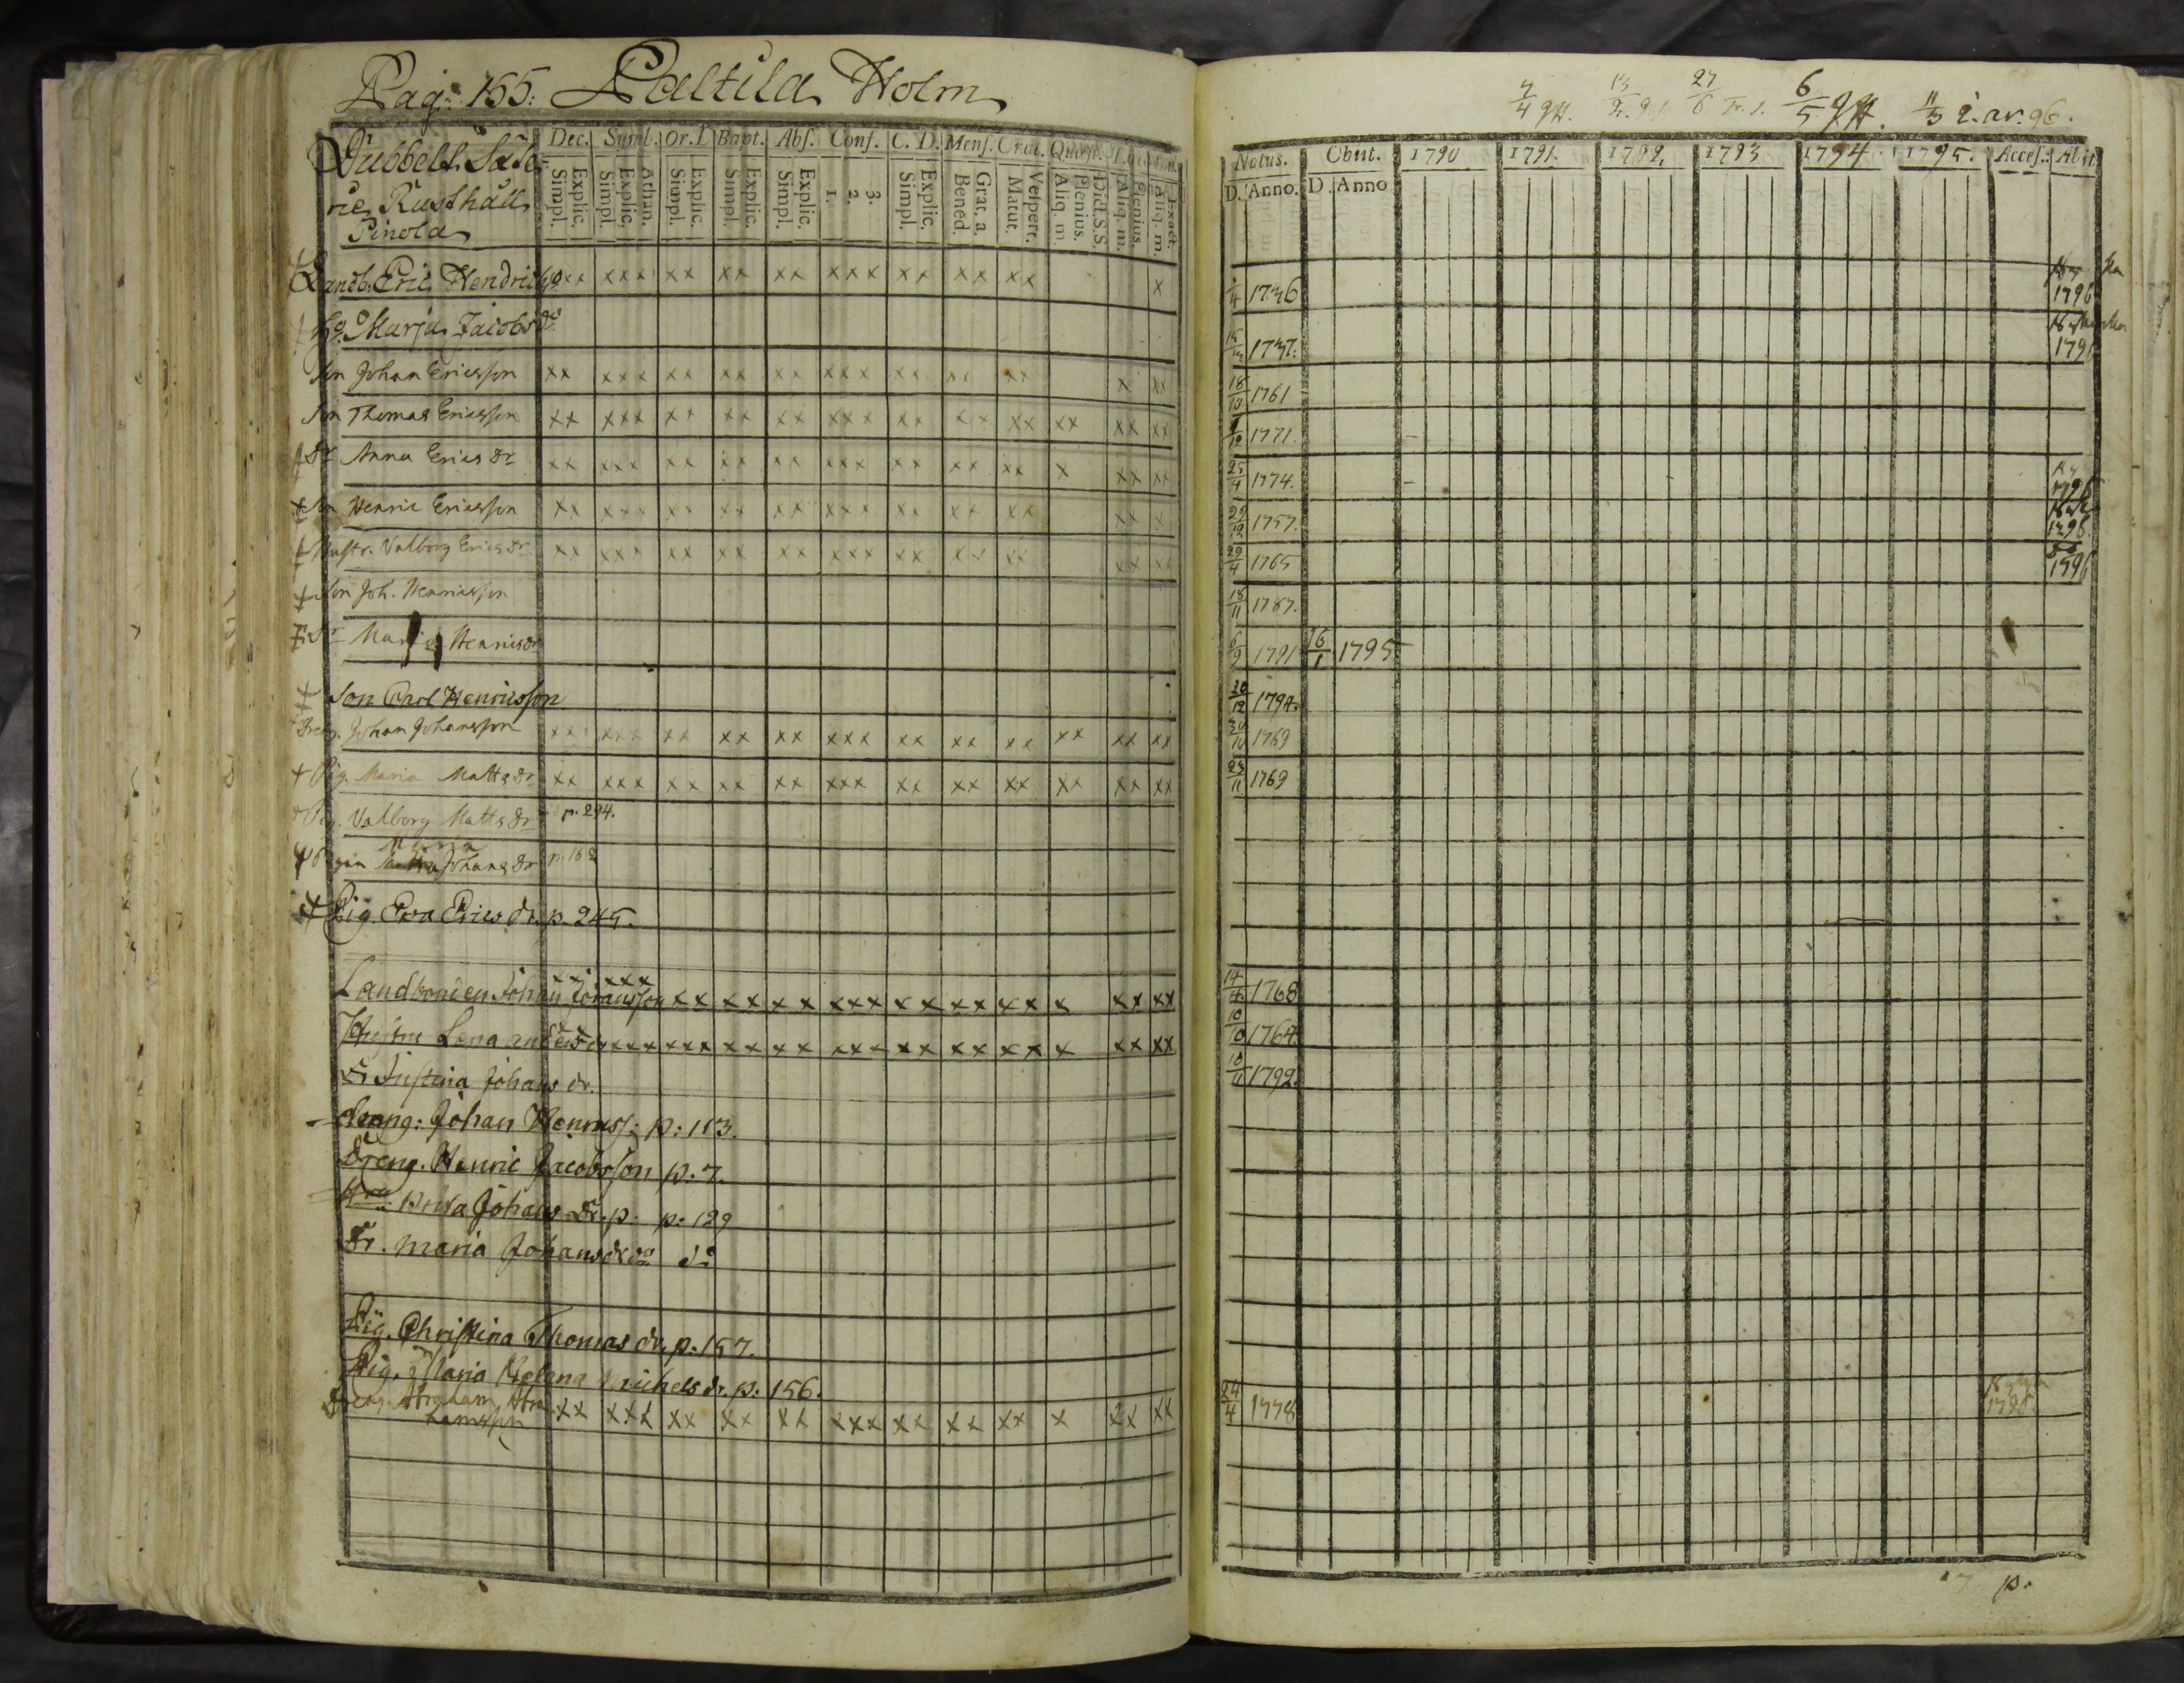 Pag: 155: Paltila Holm
Dubbelt Säte-
rie Rusthåll
Pinola
Dec. Symb. Or. D Bapt. Abs. Conf. C. D. Mens. Orat. Quæst.
Explic. Simpl. Athan. Explic. Simpl. Explic. Simpl. Explic. Simpl. Explic. Simpl. 3. 2. 1. Explic. Simpl. Grat. a. Bened. Vespert. Matut. D. d. S. S. Plenius. Aliq. m. Plenius. Aliq. m. Exact. Aliq. m.
Landb. Eric Hendricss xx xxx xx xx xx xxx xx xx xx x
Marja Jacobs dr
Son Johan Ericsson xx xxx xx xx xx xxx xx xx xx x xx
Son Thomas Ericsson xx xxx xx xx xx xxx xx xx xx xx xx xx
Dr Anna Erics dr xx xxx xx xx xx xxx xx xx xx x xx xx
Son Henric Ericsson xx xxx xx xx xx xxx xx xx xx xx x
Hustr. Valborg Erics dr xx xxx xx xx xx xxx xx xx xx xx xx
Son Joh. Henricsson
Dr Maria Henrics dr
Son Carl Henricsson
Dreng. Johan Johansson xx xxx xx xx xx xxx xx xx xx xx xx xx
Pig. Maria Matts dr xx xxx xx xx xx xxx xx xx xx xx xx xx
Pig. Valborg Matts dr p. 294.
Maria
Pigan Johans dr p. 168
Pig. Eva Erics dr. p. 245.
Landbonden Johan Johansson xx xxx xx xx xx xxx xx xx xx x xx xx
Hustru Lena anders dr xxx xxx xx xx xxx xx xx xx x xx xx
dr Justina Johans dr.
dreng: Johan Henricss: p: 113.
Dreng. Henric Jacobsson p. 7.
Brita Johans Dr. p. p. 129
Dr. Maria Johans dr do do
Pig. Christina Thomas dr. p. 157.
Pig. Maria Helena Michels dr. p: 156.
Dreng Abraham Abra
hamsson xx xxx xx xx xx xxx xx xx xx x xx xx
4/4 27/6 6/5 11/3 2. ar. 96.
Natus. Obiit. 1790 1791. 1792, 1793 1794 1795. Acces. Abit
D. Anno. D. Anno
1736
1796
1737.
1796
18/10 1761
1/12 1771.
25/4 1774.
1796
29/12 1757.
1796.
29/4 1765
1796
18/11 1787.
6/9 1791 16/1 1795
30/12 1794.
30/10 1769
23/11 1769
14/4 1768
10/10 1764
10/11 1792.
24/4 1778
1795.
p.